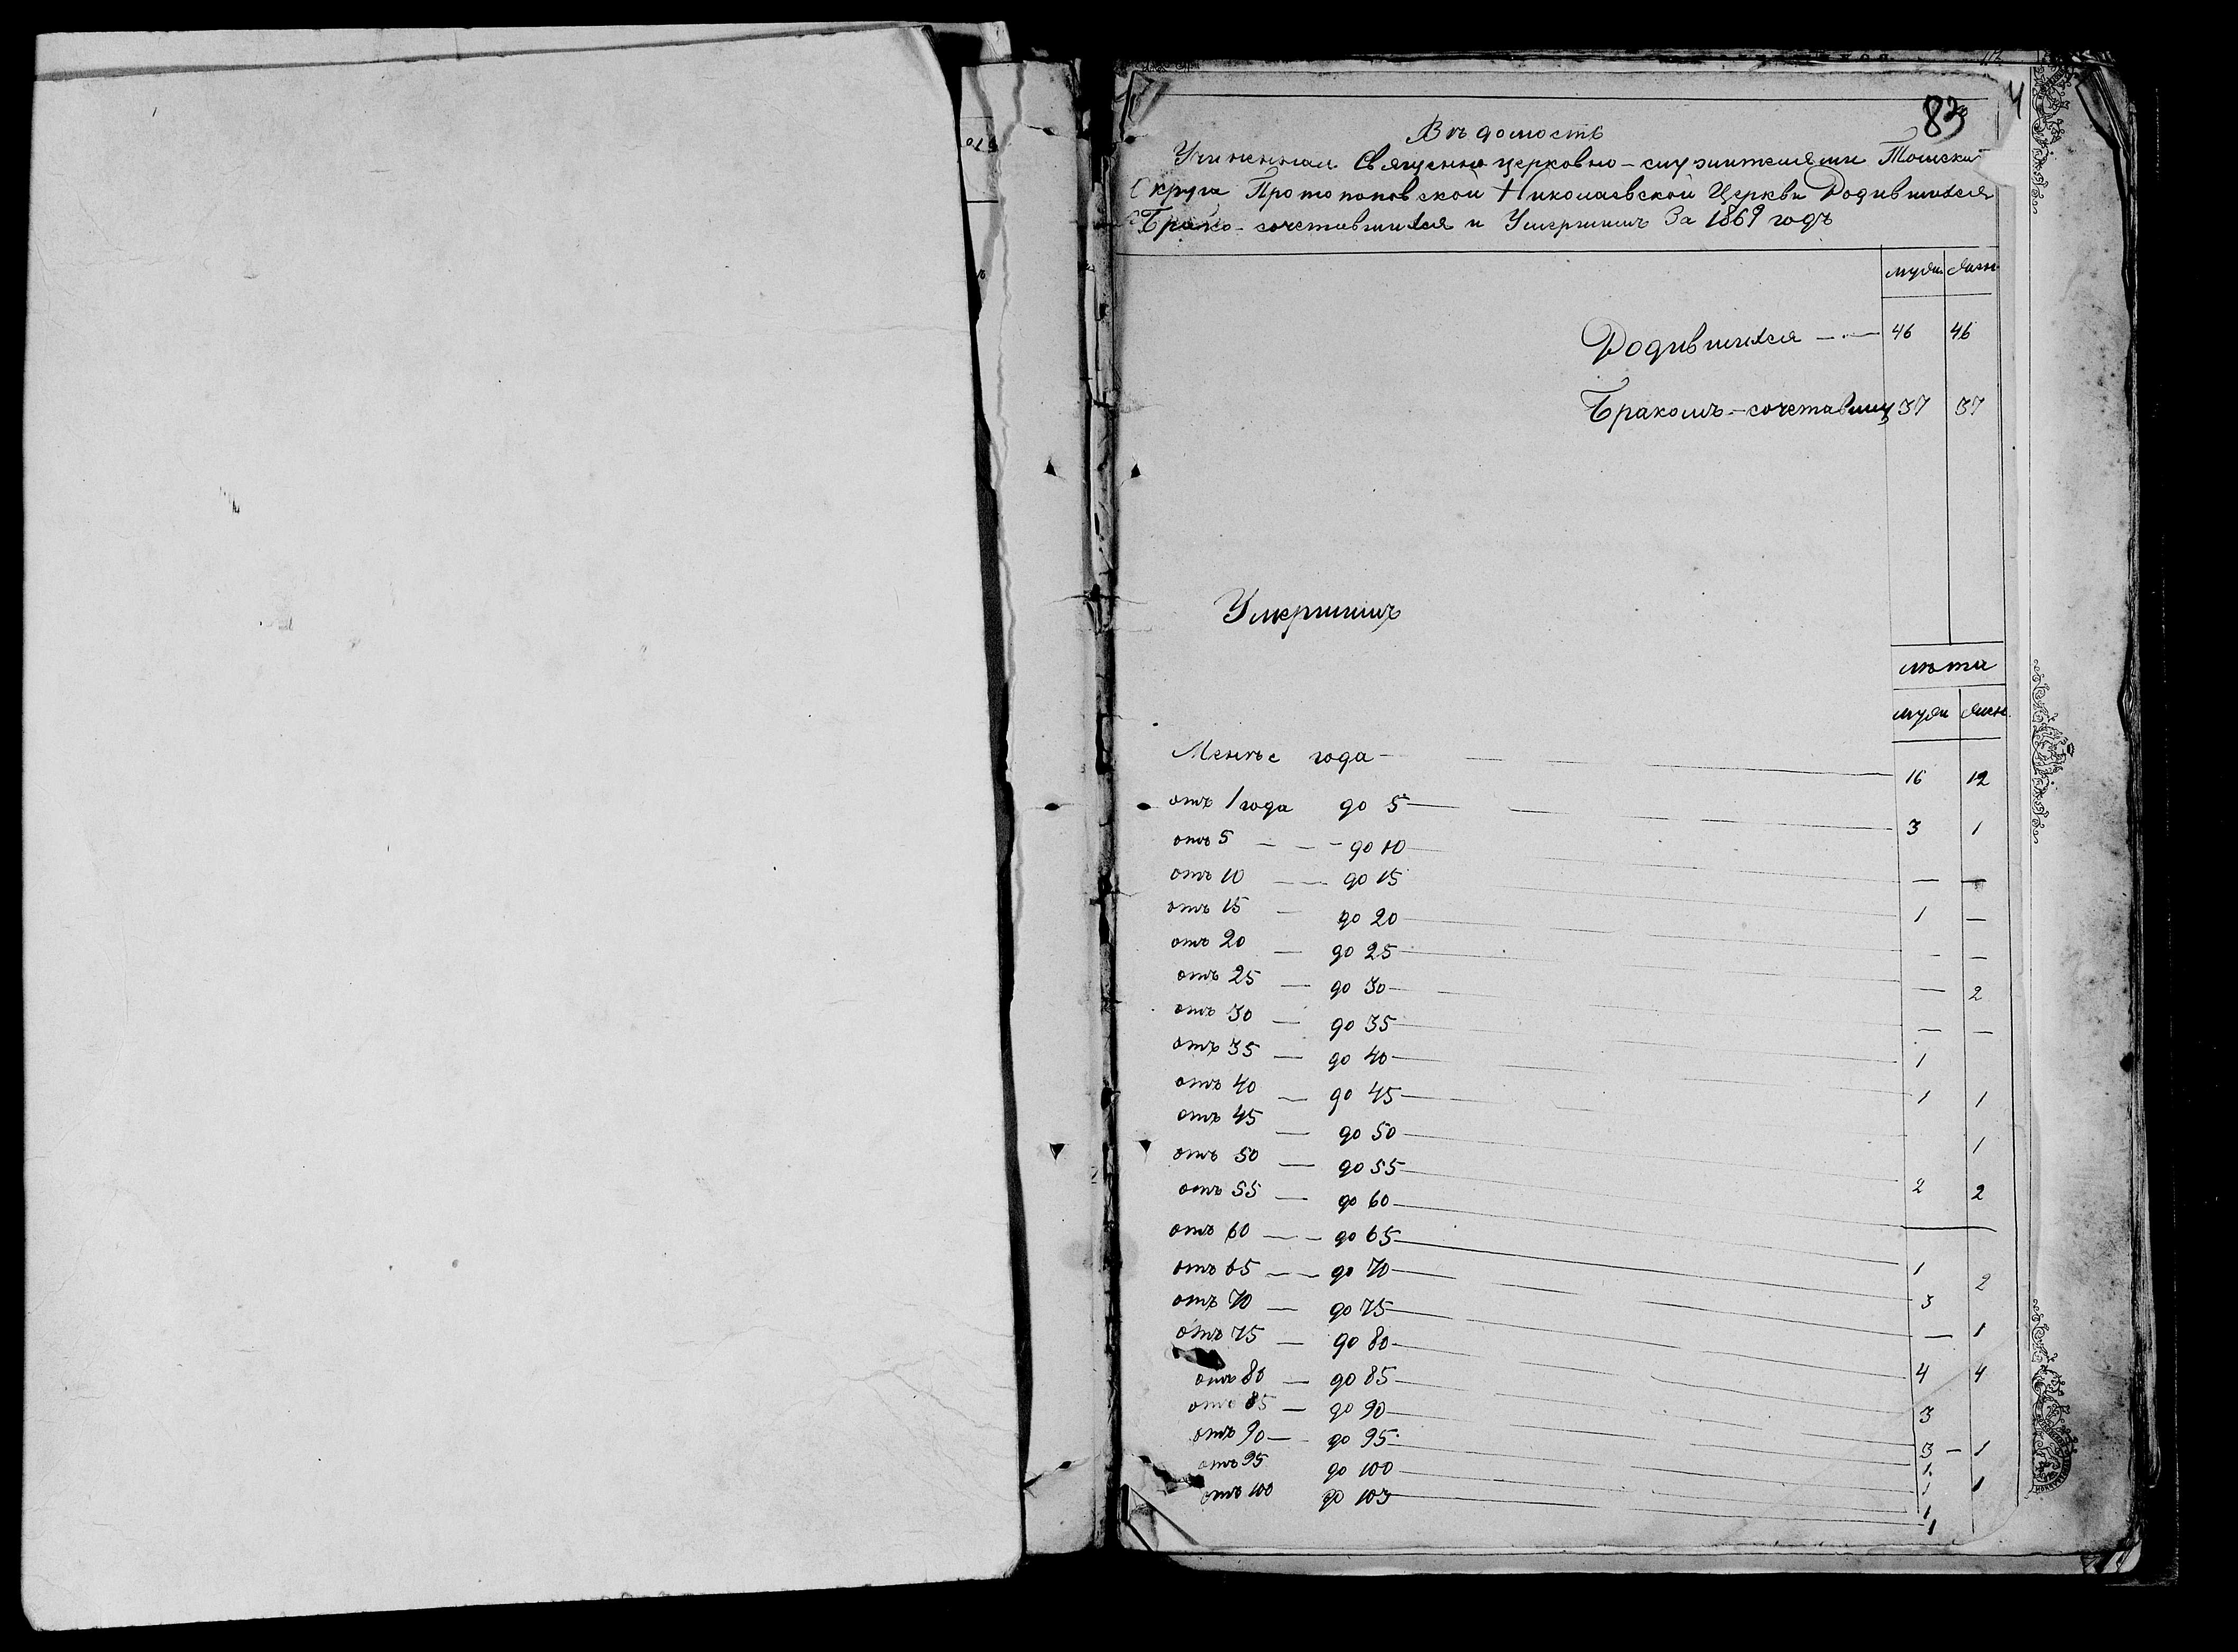 83
Вѣдомость
Учиненная Священно церковно-служителями Томска
Округа Протопоповской Николаевской Церкви Родившихся
Брако-сочетавшихся и Умершихъ За 1869 годъ
муж. жен.
Родившихся — 46 46
Бракомъ-сочетавших 37 37
Умершихъ
лѣта
муж жен.
Менѣе года — 16 12
отъ 1 года до 5 — 3 1
отъ 5 — до 10 — — —
отъ 10 — до 15 1 —
отъ 15 — до 20 — - —
отъ 20 — до 25 — — 2
отъ 25 — до 30 — — —
отъ 30 — до 35 — 1
отъ 35 — до 40 — 1 1
отъ 40 — до 45 — 1
отъ 45 — до 50 — 2 2
отъ 50 — до 55 —
отъ 55 — до 60 — 1
отъ 60 — до 65 — 3 2
отъ 65 — до 70 — — 1
отъ 70 — до 75 — 4 4
отъ 75 — до 80 — 3
отъ 80 — до 85 — 3 — 1
отъ 85 — до 90 — 1
отъ 90 — до 95 — 1 1
отъ 95 до 100 — 1
отъ 100 до 103 — 1